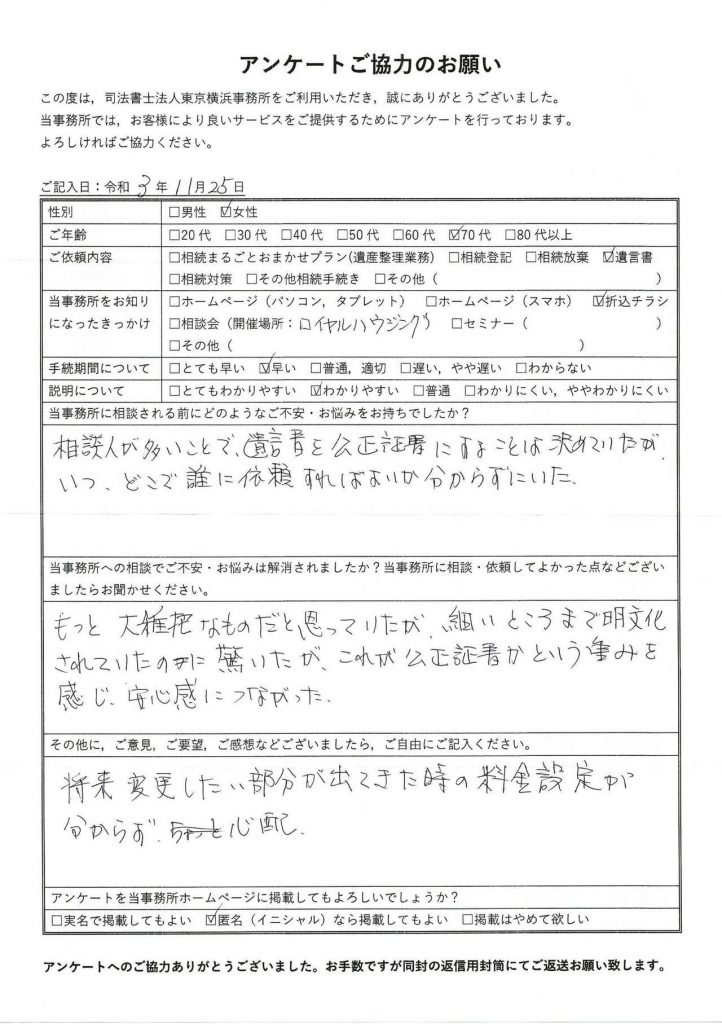 アンケートご協力のお願い
この度は，司法書士法人東京横浜事務所をご利用いただき，誠にありがとうございました。
当事務所では，お客様により良いサービスをご提供するためにアンケートを行っております。
よろしければご協力ください。
ご記入日：令和 3 年 11月 25日
性別 □男性 ☑女性
ご年齢 □20代 □30代 □40代 □50代 □60代 ☑70代 □80代以上
ご依頼内容 □相続まるごとおまかせプラン(遺産整理業務) □相続登記 □相続放棄 ☑遺言書
□相続対策 □その他相続手続き □その他（ ）
当事務所をお知り □ホームページ（パソコン，タブレット） □ホームページ（スマホ） ☑折込チラシ
になったきっかけ □相談会（開催場所：ロイヤルハウジング） □セミナー（ ）
□その他（ ）
手続期間について □とても早い ☑早い □普通，適切 □遅い，やや遅い □わからない
説明について □とてもわかりやすい ☑わかりやすい □普通 □わかりにくい，ややわかりにくい
当事務所に相談される前にどのようなご不安・お悩みをお持ちでしたか？
相談人が多いことで、遺言書を公正証書にすることは決めていたが、
いつ、どこで誰に依頼すればよいか分からずにいた。
当事務所への相談でご不安・お悩みは解消されましたか？当事務所に相談・依頼してよかった点などござい
ましたらお聞かせください。
もっと大雑把なものだと思っていたが、細いところまで明文化
されていたのに驚いたが、これが公正証書かという重みを
感じ、安心感につながった。
その他に，ご意見，ご要望，ご感想などございましたら，ご自由にご記入ください。
将来変更したい部分が出てきた時の料金設定が
分からず、ちょっと心配。
アンケートを当事務所ホームページに掲載してもよろしいでしょうか？
□実名で掲載してもよい ☑匿名（イニシャル）なら掲載してもよい □掲載はやめて欲しい
アンケートへのご協力ありがとうございました。お手数ですが同封の返信用封筒にてご返送お願い致します。